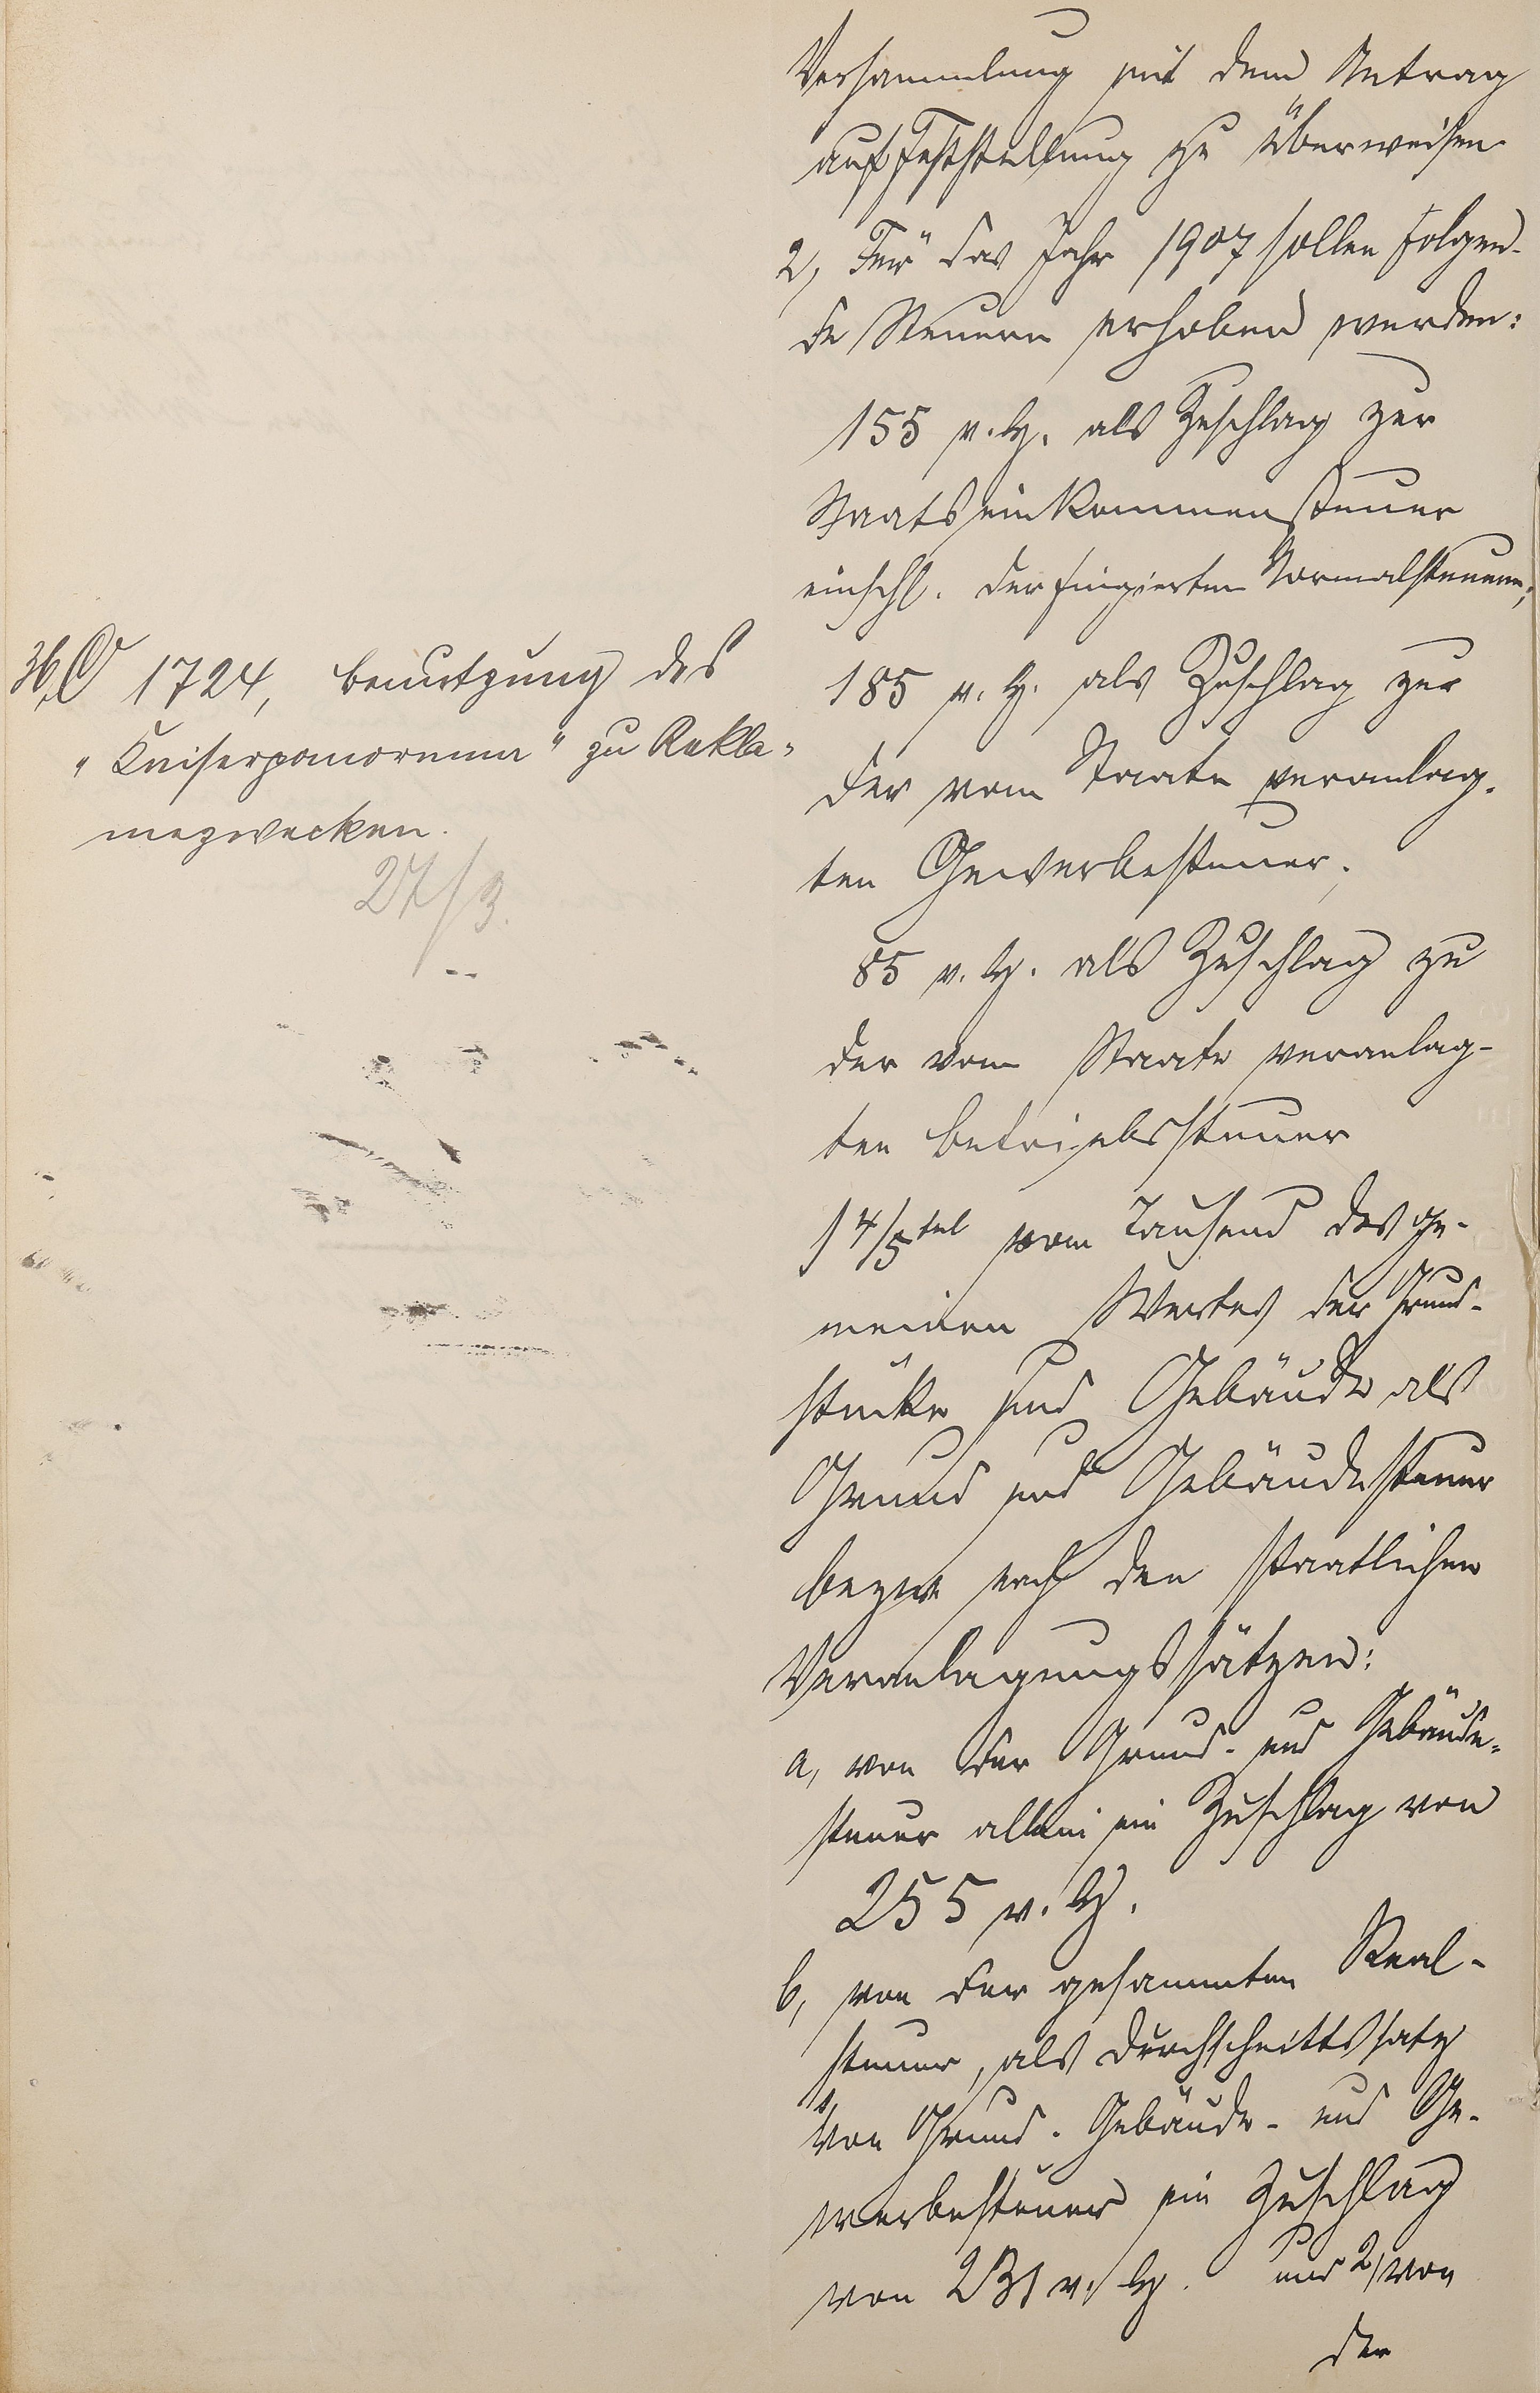 Versammlung mit dem Antrag
auf Feststellung zu überweisen
2, Für das Jahr 1907 sollen folgen-
de Steuern erhoben werden:
155 v. H. als Zuschlag zur
Staatseinkommensteuer
einschl. der fingierten Normalsteuern;
185 v. H. als Zuschlag zur
der vom Staate veranlag-
ten Gewerbesteuer;
85 v. H. als Zuschlag zu
der vom Staate veranlag-
ten Betriebssteuer
1 4/5tel vom Tausend des ge-
meinen Wertes der Grund-
stücke und Gebäude als
Grund und Gebäudesteuer
bezw nach den staatlichen
Veranlagungssätzen:
a, von der Grund- und Gebäude-
steuer allein ein Zuschlag von
255 v. H.
b, von der gesammten Real-
steuer, als Durchschnittssatz
1, von Grund- Gebäude- und Ge-
werbesteuer ein Zuschlag
von 231 v. H. und 2, von
der
36, O 1724, Benutzung des
"Kaiserpanorama" zu Rekla-
mezwecken.
27/3.